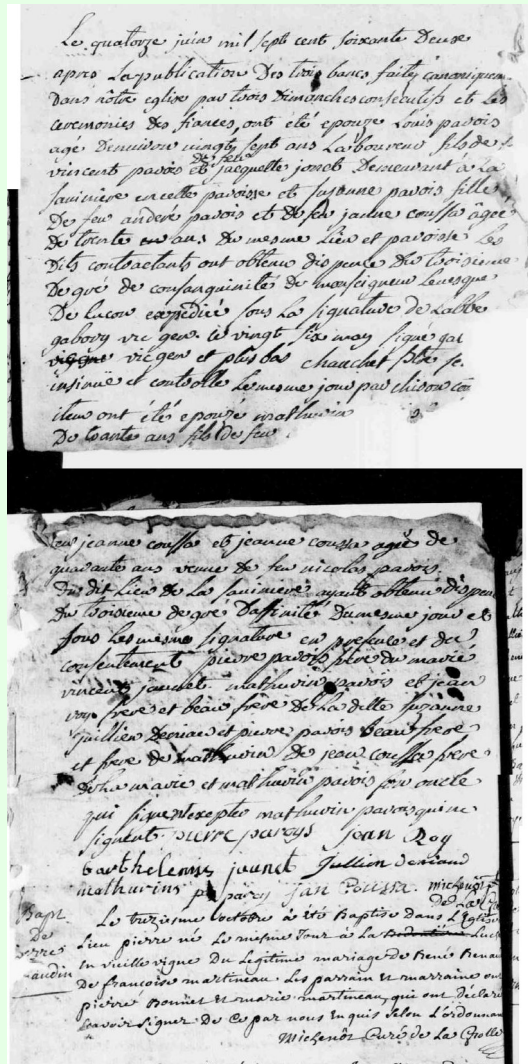 Le quatorze juin mil sept cent soixante Deuxe
apres La publication Des trois bancs faits canoniquem
Dans nôtre eglise par trois Dimanches consecutifs et Les
ceremonies des fiances, ont été epouzé Louis pavois
agé Denviron vingt sept ans Laboureur fils de f
vincent pavois et de feue jacquette jonet Demeurant à La
saminiere en cette paroisse et susanne pavois fille
De feu andere pavois et de feu janne coussa âgée
de trente ans du mesme Lieu et paroisse Les
Dits contractants ont obtenu dispence du troisieme
De gré de consanguinité de monseigneur Levesque
De Luçon expedié sous La signature de Labbé
gabory vic gen. le vingt six may signé gai
vic gen et plus bas chauchet Ptre se
insinué et controllé Le mesme jour par chison con
item ont été epouzé mathurin
De trante ans fils de feu
feu jeanne coussa et jeanne coussa agée de
quarante ans veuve de feu nicolas pavois
Du dit Lieu de La saminiere ayants obtenu dispen
Du troisieme de gré Daffinité Du mesme jour et
sous Les mesme signature en presence et du
consentement pierre pavois frere du marié
vincent jaunet mathurin pavois et jean
roy frere et beau frere de La ditte suzanne
juillien Deniau et pierre pavois beau frere
et frere de mathurin De jean coussa frere
De La mariée et mathurin pavois son oncle
qui signent excepté mathurin pavois qui ne
signent. pierre paroys jean Roy
barthelemis jaunet Jullien deniaud
mathurins paroy Jan Coussa. michenot
de La
Bapt. De pierre
Le treziesme octobre a été Baptisé dans L'Eglise
Lieu pierre né Le mesme Jour à La
En vieille vigne du Legitime mariage de René Renau
de francoise martineau Les parrain et marraine on
pierre Bonnet et marie martineau, qui ont déclaré
scavoir signer De ce par nous Enquis selon L'ordonnan
Michenôt Curé de La Grolle